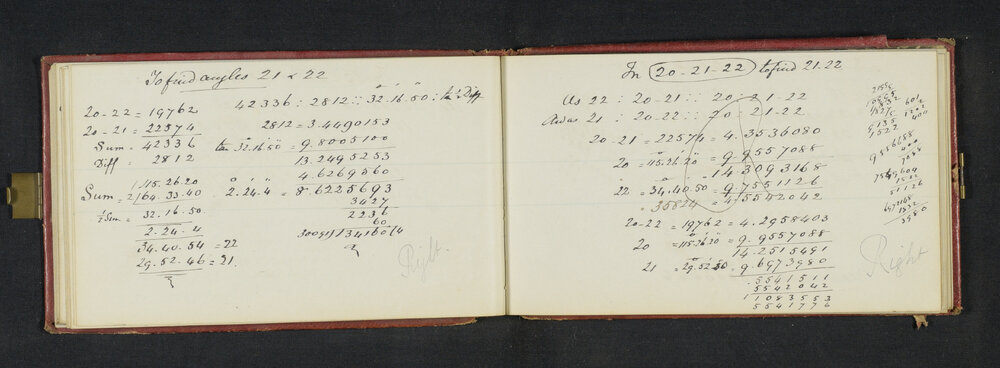 To find angles 21 & 22
42336 : 2812 :: 32.16.50 : tan ½ Diff
20-22 = 19762
20-21 = 22574
Sum = 42336
Diff = 2812
2812 = 3.4490153
tan 32.16.50 = 9.8005100
13.2495253
4.6269560
2.24.4 = 8.6225693
3427
2236
60
30091)134160(4
115.26.20
Sum = 2)64.33.40
½ Sum = 32.16.50
2.24.4
34.40.54 = 22
29.52.46 = 21
Right
In 20-21-22 to find 21.22
As 22 : 20-21 :: 20 : 21-22
And as 21 : 20-22 :: 20 : 21-22
20-21 = 22574 = 4.3536080
20 = 115.26.20 = 9.9557088
14.3093168
22 = 34.40.50 = 9.7551126
= 35824 = 4.5542042
20-22 = 19762 = 4.2958403
20 = 115.26.20 = 9.9557088
14.2515491
21 = 29.52.50 9.6973980
.5541511
5542042
11083553
5541776
Right